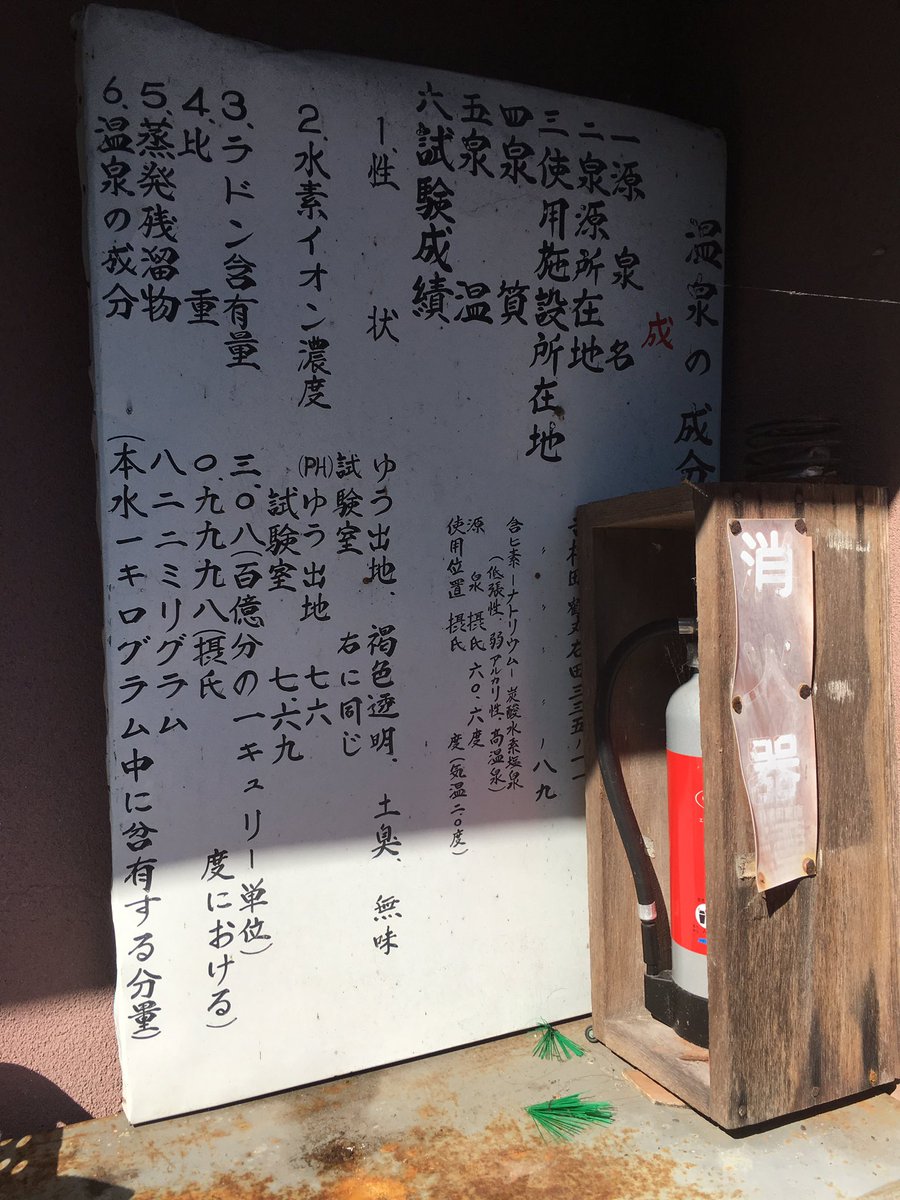 温泉の成分
成
一源泉名
二泉源所在地
三使用施設所在地
四泉質
含ヒ素ーナトリウムー炭酸水素塩泉
(低張性、弱アルカリ性、高温泉)
五泉温
源泉 摂氏六〇.六度
使用位置 摂氏 度(気温二.〇度)
六試験成績
1.性状 ゆう出地、褐色透明、土臭、無味
試験室 右に同じ
2.水素イオン濃度 (PH)ゆう出地 七.六
試験室 七.六九
3.ラドン含有量 三.〇八(百億分の一キュリー単位)
4.比重 〇.九九九八摂氏 度における)
5.蒸発残溜物 八二二ミリグラム
6.温泉の成分 (本水一キログラム中に含有する分量)
消火器